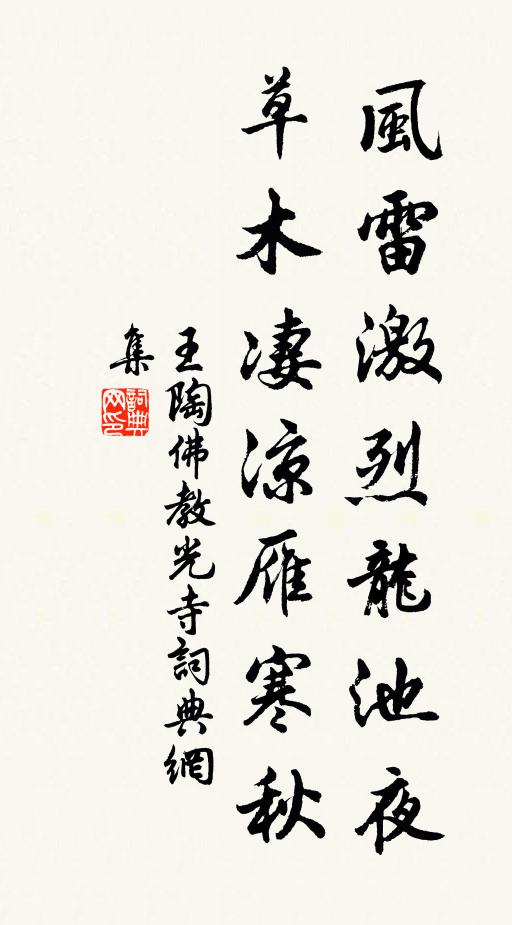 風雷激烈龍池夜
草木凄凉雁寒秋
王陶佛教光寺詞典網
集
詞典網印